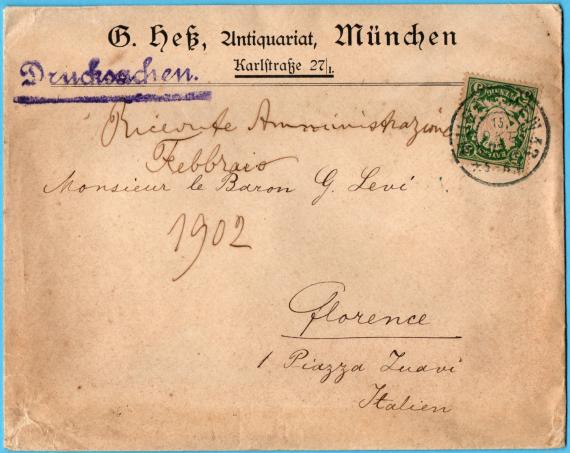 G. Heß, Antiquariat, München
Karlstraße 27/I.
Drucksachen.
Ricevute Amministrazione
Febbraio
Monsieur le Baron G. Levi
1902
Florence
1 Piazza Zuavi
Italien